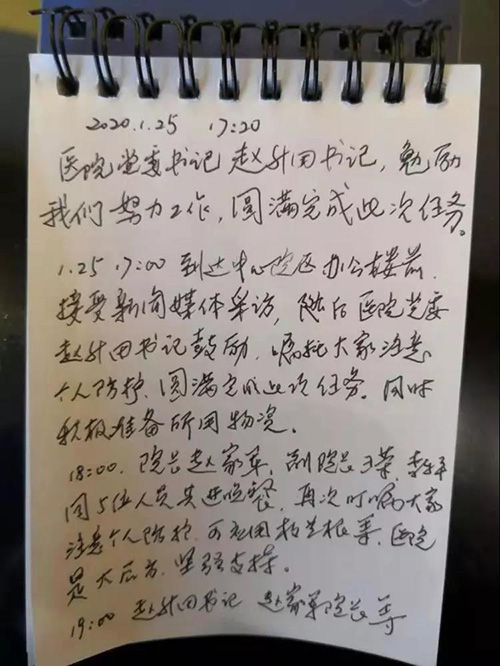 2020.1.25 17:20
医院党委书记赵升田书记，勉励
我们努力工作，圆满完成此次任务。
1.25 17:00 到达中心院区办公楼前，
接受新闻媒体采访，随后医院党委
赵升田书记鼓励，嘱托大家注意
个人防护，圆满完成此次任务。同时
积极准备所用物资。
18:00. 院长赵家军，副院长王荣，李
同5位人员共进晚餐，再次叮嘱大家
注意个人防护，可应用板兰根等，医院
是大后方，坚强支持。
19:00 赵升田书记 赵家军院长等